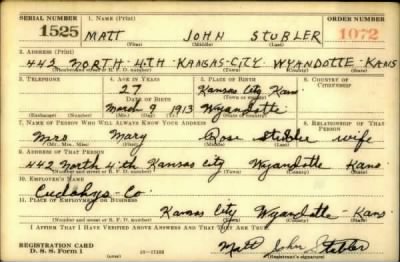 SERIAL NUMBER 1. NAME (Print) ORDER NUMBER
1525 MATT JOHN STUBLER 1072
(First) (Middle) (Last)
2. ADDRESS (Print)
442 NORTH 4TH KANSAS-CITY WYANDOTTE KANS
(Number and street or R. F. D. number) (Town) (County) (State)
3. TELEPHONE 4. AGE IN YEARS 5. PLACE OF BIRTH 6. COUNTRY OF CITIZENSHIP
27 Kansas City Kans.
DATE OF BIRTH (Town or county)
March 9 1913 Wyandotte
(Exchange) (No.) (Mo.) (Day) (Yr.) (State or country)
7. NAME OF PERSON WHO WILL ALWAYS KNOW YOUR ADDRESS 8. RELATIONSHIP OF THAT PERSON
Mrs Mary Rose Stubler wife
(Mr., Mrs., Miss) (First) (Middle) (Last)
9. ADDRESS OF THAT PERSON
442 North 4th Kansas City Wyandotte Kans
(Number and street or R. F. D. number) (Town) (County) (State)
10. EMPLOYER'S NAME
Cudahys - Co.
11. PLACE OF EMPLOYMENT OR BUSINESS
Kansas City Wyandotte - Kans.
(Number and street or R. F. D. number) (Town) (County) (State)
I AFFIRM THAT I HAVE VERIFIED ABOVE ANSWERS AND THAT THEY ARE TRUE.
REGISTRATION CARD
D. S. S. Form 1 Matt John Stubler
(Registrant's signature)